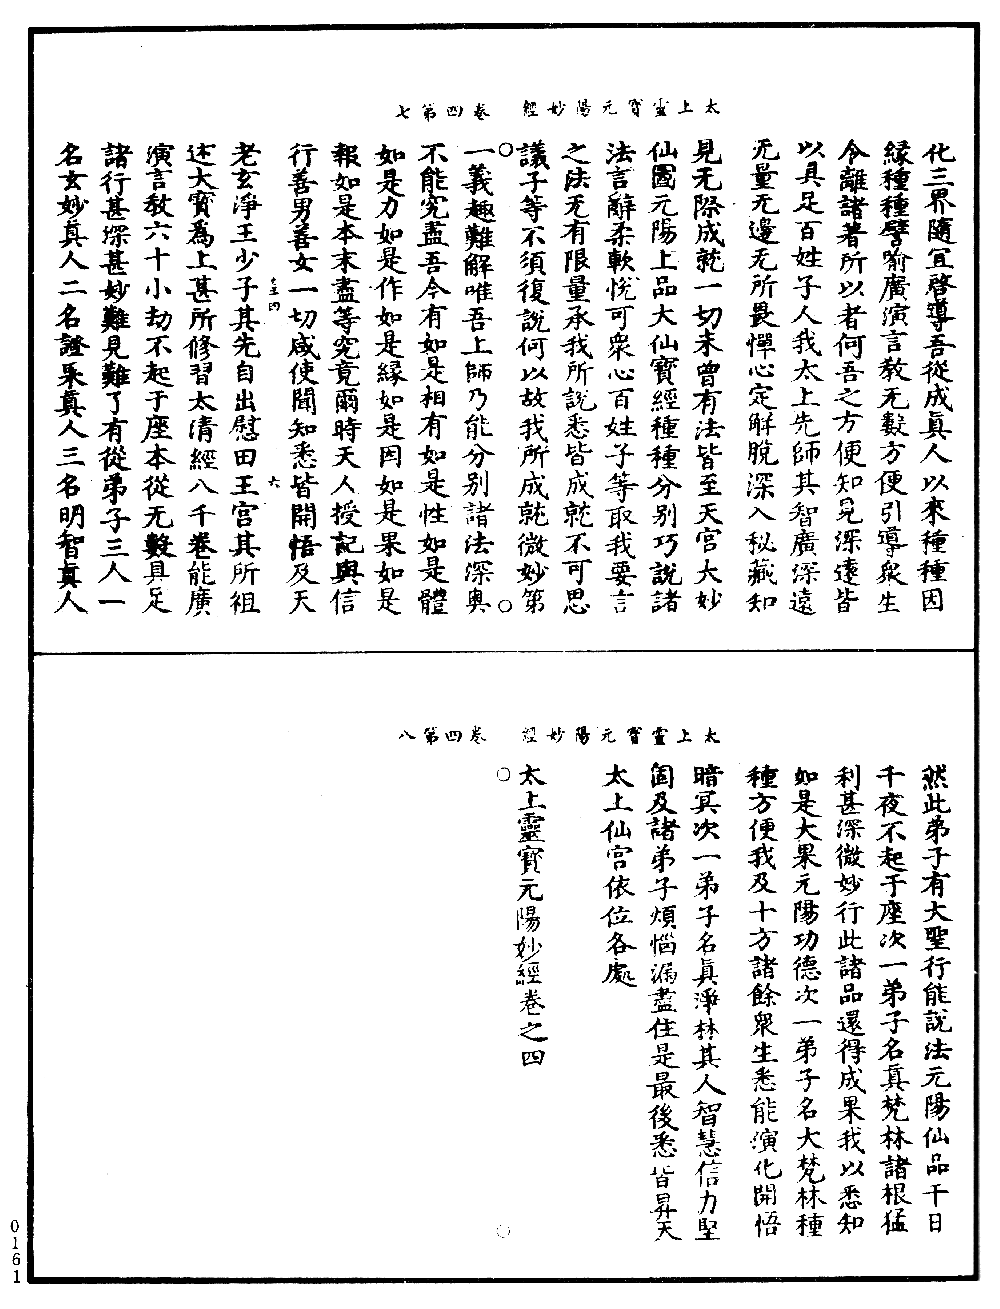 太上靈寳元陽妙經　卷四第七
化三界隨冝啓導吾從成真人以來種種因
縁種種譬喻廣演言教无數方便引導衆生
令離諸著所以者何吾之方便知見深遠皆
以具足百姓子人我太上先師其智廣深遠
无量无邊无所畏憚心定解脫深入秘藏知
見无際成就一切未曾有法皆至天宫大妙
仙圖元陽上品大仙寳經種種分别巧說諸
法言辭柔軟悅可衆心百姓子等取我要言
之法无有限量承我所說悉皆成就不可思
議子等不須復說何以故我所成就微妙第
一義趣難解唯吾上師乃能分别諸法深奥
不能究盡吾今有如是相有如是性如是體
如是力如是作如是緣如是因如是果如是
報如是本末盡等究竟爾時天人授記與信
行善男善女一切咸使聞知悉皆開悟及天
老玄淨王少子其先自出慰田王宫其所祖
述大寳爲上甚所修習太清經八千卷能廣
演言教六十小劫不起于座本從无數具足
諸行甚深甚妙難見難了有從弟子三人一
名玄妙真人二名證果真人三名明智真人
太上靈寳元陽妙經　卷四第八
然此弟子有大聖行能說法元陽仙品千日
千夜不起于座次一弟子名真梵林諸根猛
利甚深微妙行此諸品還得成果我以悉知
如是大果元陽功德次一弟子名大梵林種
種方便我及十方諸餘衆生悉能演化開悟
暗冥次一弟子名真淨林其人智慧信力堅
固及諸弟子煩惱漏盡住是最後悉皆昇天
太上仙宫依位各處
太上靈寳元陽妙經卷之四
0161